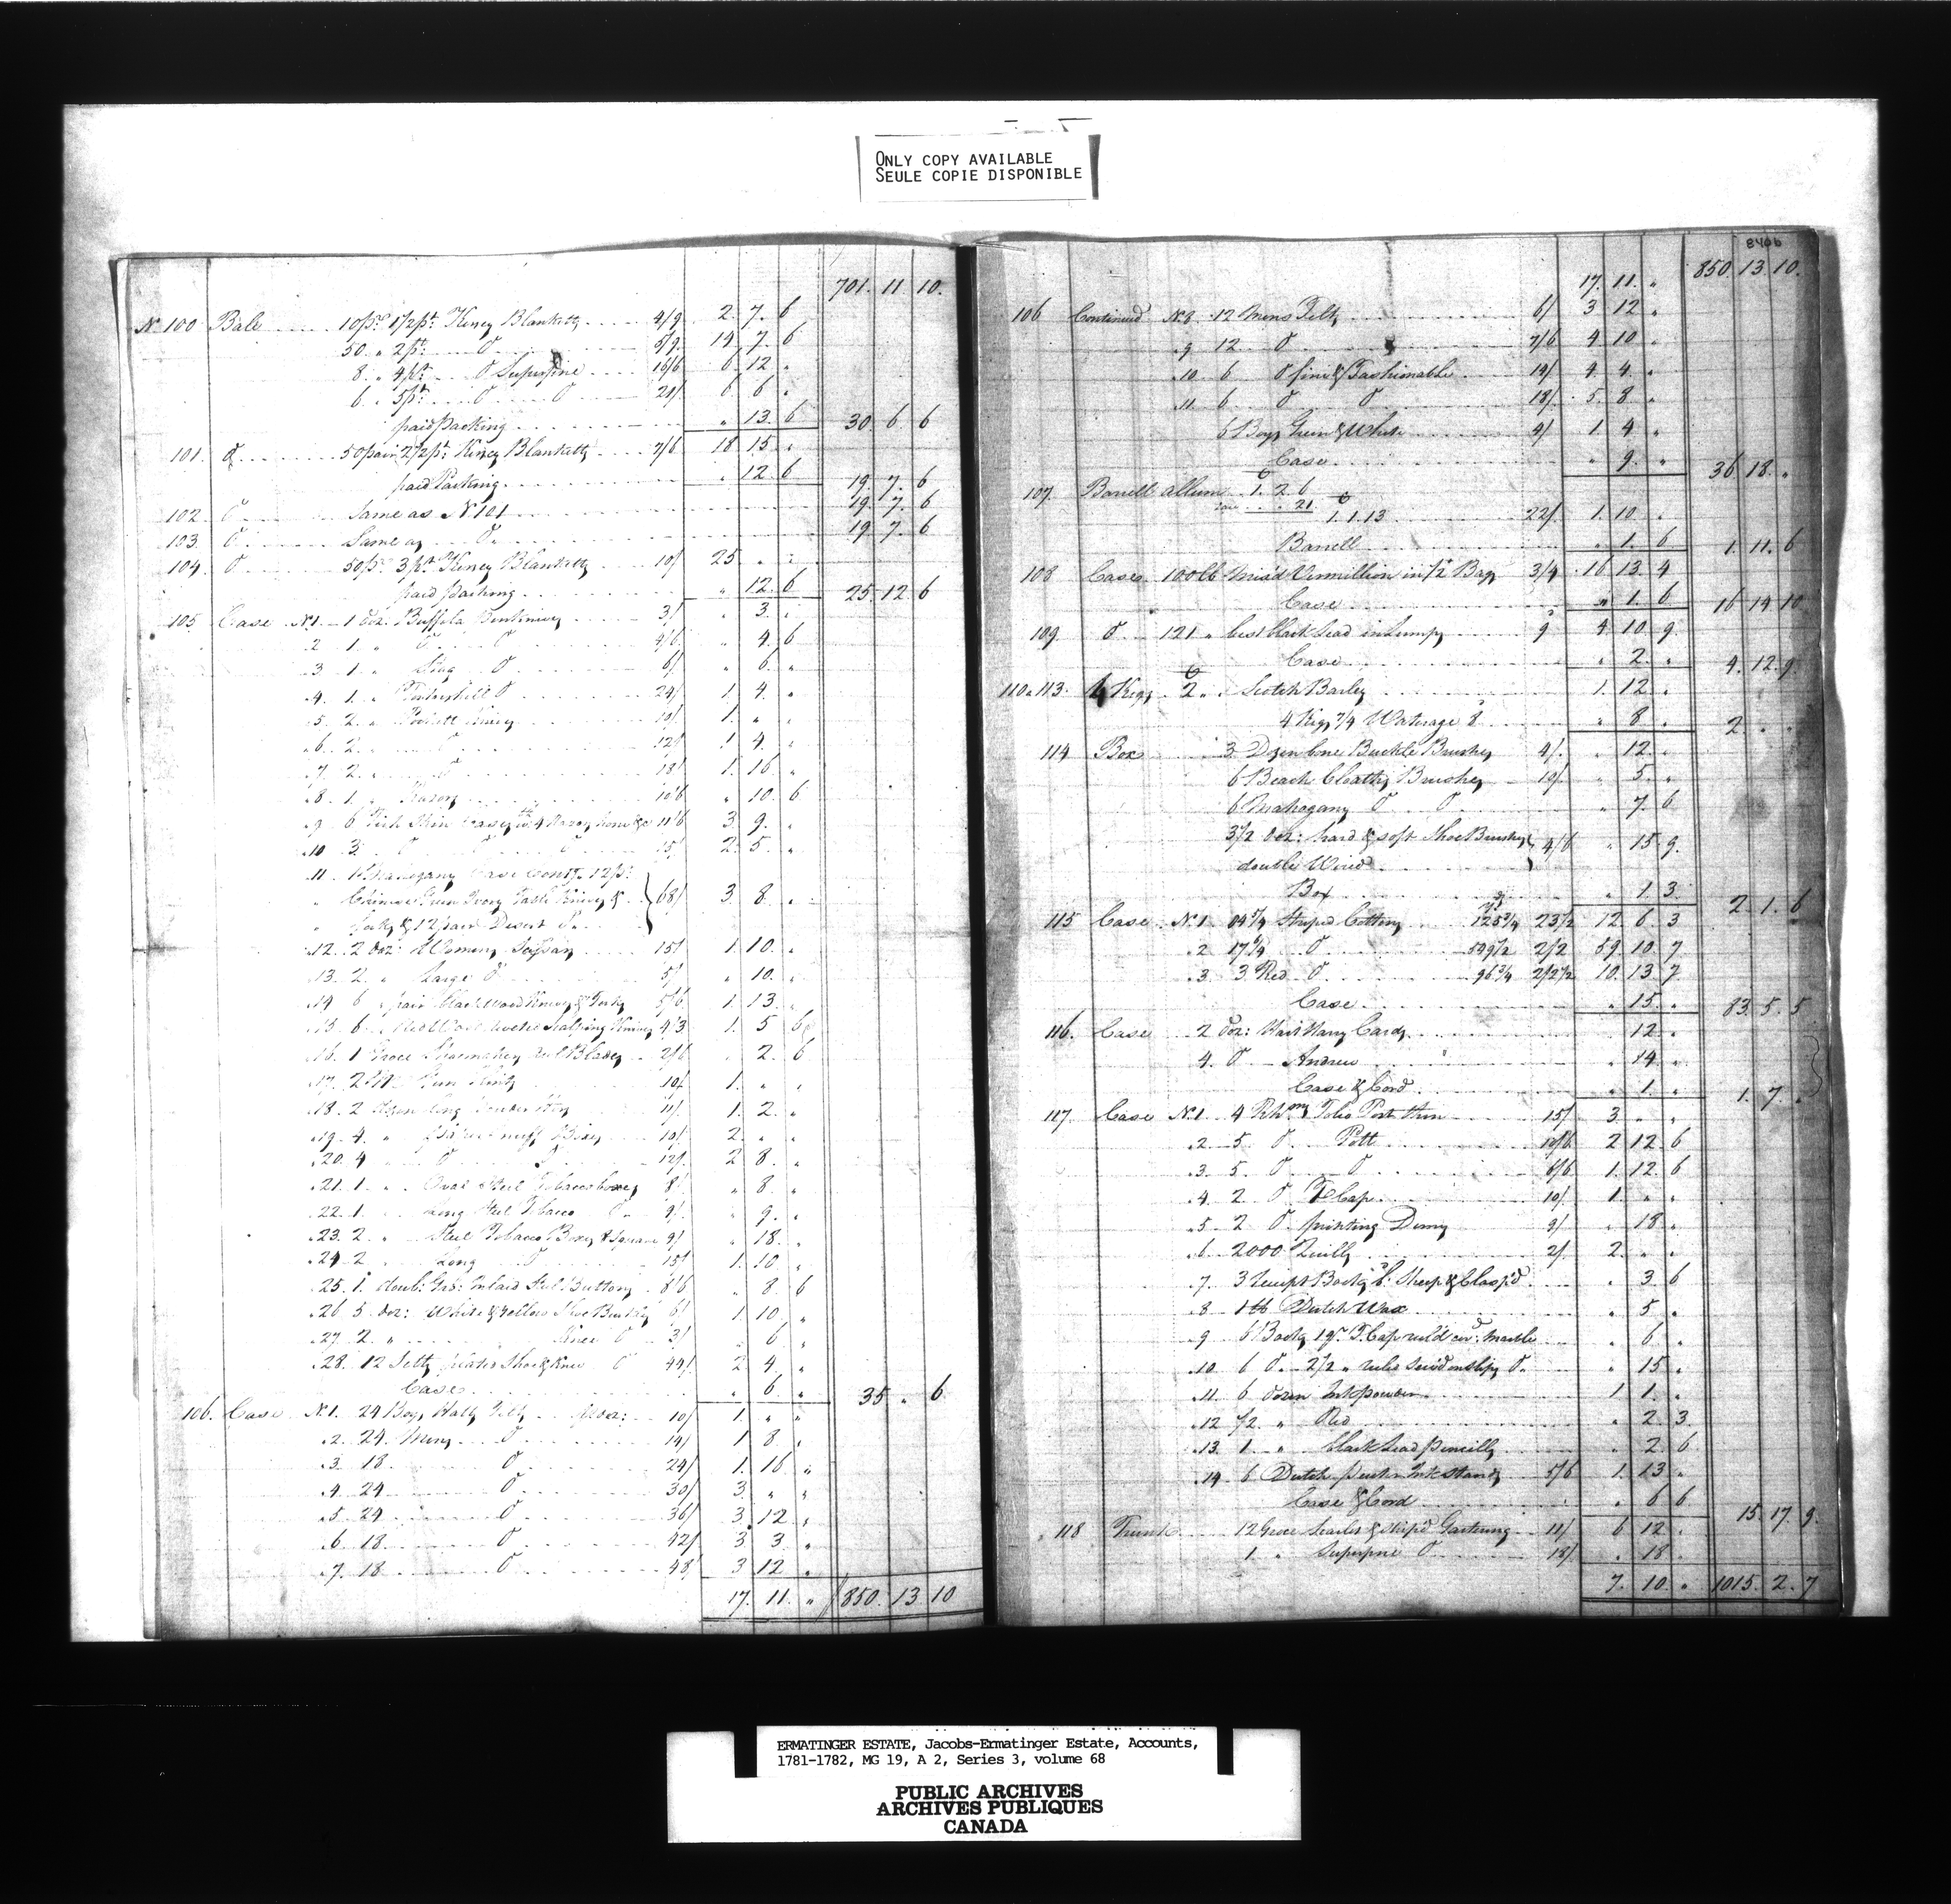 ONLY COPY AVAILABLE
SEULE COPIE DISPONIBLE
701. 11 10.
No 100 Bale 10 ps. 1 1/2 pt. Kersey Blanketts 4/9 2. 7. 6
50 " 2 pt: Do 5/9 14 7 6
8. " 4 pt: Do Superfine 16/6 6. 12 "
6. " 5 pt: Do Do 21/ 6 6 "
paid Packing " 13. 6 30. 6 6
101. Do 50 pair 2 1/2 pt: Kersey Blanketts 7/6 18 15 "
paid Packing " 12. 6 19. 7. 6
102. Do Same as No 101 19. 7. 6
103. Do Same as Do 19. 7 6
104. Do 50 ps. 3 pt. Kersey Blanketts 10/ 25 " "
paid Packing " 12. 6 25. 12 6
105. Case No 1. 1 doz. Buffalo 3/ " 3. "
" 2 1. " Do Do 4/6 " 4 6
" 3. 1. " Long Do 6/ " 6. "
" 4. 1. " Do 24/ 1. 4. "
" 5. 2. " 10/ 1. " "
" 6. 2. " Do 12/ 1 4. "
" 7. 2. " Do 18/ 1. 16 "
" 8. 1. " Razors 10/6 " 10. 6
" 9. 6 Fish Skin Cases 4 Razors hone &c 11/6 3 9. "
" 10 3. Do Do Do 15/ 2. 5. "
" 11. 1 Mahogany Case Contg. 12 ps:
" Chinese Green Ivory Table Knives & 68/ 3 8. "
" forks & 12 pair Desert Do
" 12. 2 doz: Womens 15/ 1. 10. "
" 13. 2. " Large Do 5/ " 10. "
" 14 6 " pair black wood Knives & Forks 5/6 1. 13. "
" 15. 6. " Scalping Knives 4/3 1. 5 6
" 16. 1 Groce Shoemakers Blades 2/6 " 2. 6
" 17. 2 M. Gun flints 10/ 1. " "
" 18. 2 Dozen long 11/ 1. 2. "
" 19. 4. " Paper snuff Boxes 10/ 2. " "
" 20. 4 " Do Do 12/ 2 8. "
" 21. 1. " Oval Steel Tobacco boxes 8/ " 8. "
" 22. 1. " Long Steel Tobacco Do 9/ " 9. "
" 23. 2. " Steel Tobacco Boxes Square 9/ " 18. "
" 24 2 " Long Do 15/ 1. 10. "
" 25. 1. doub: Gro: Inlaid Steel Buttons 8/6 " 8 6
" 26 5. doz: White & Yellow Shoe Buckles 6/ 1. 10. "
" 27. 2 " Knee Do 3/ " 6 "
" 28. 12 Setts plated Shoe & Knee Do 44/ 2. 4 "
Case " 6 " 35 " 6.
106. Case No 1. 24 Boys Felts 10/ 1. " "
" 2. 24. Mens Do 14/ 1 8 "
" 3 18. Do 24/ 1. 16 "
" 4 24 Do 30/ 3. " "
" 5. 24 Do 36/ 3. 12 "
" 6. 18. Do 42/ 3 3 "
" 7. 18 Do 48/ 3 12 "
17. 11. " 850. 13 10
8406
17. 11. " 850. 13. 10.
106 Continued No 8. 12 Mens Felts 6/ 3 12 "
" 9 12 Do 7/6 4 10 "
" 10. 6 Do fine & Fashionable 14/ 4. 4. "
" 11. 6 Do Do 18/ 5. 8 "
6 Boys Green & White 4/ 1. 4 "
Case " 9. " 36. 18. "
107. Barrell allum 1. 2. 6
tare " 21 1. 1. 13 22/ 1. 10. "
Barrell " 1. 6 1. 11. 6
108 Case 100 lb Vermillion in Bags 3/4 16 13. 4
Case " 1. 6 16 14 10
109 Do 121 " best black Lead in Lumps 9 4 10 9
Case " 2. " 4. 12. 9
110 a 113. 4 Kegs 2 " Scotch Barley 1. 12. "
4 Kegs " 8. " 2. " "
114 Box 3 Dozen bone Buckle Brushes 4/ " 12. "
6 Beach Cloaths Brushes 10/ " 5. "
6 Mahogany Do Do " 7. 6
3 1/2 doz: hard & soft Shoe Brushes 4/6 " 15 9.
double Wired
Box " 1. 3. 2. 1. 6
115 Case No 1. Striped Cottons 125 3/4 23 1/2 12 6 3
" 2. Do 549 1/2 2/2 59 10 7
" 3. 3 Red Do 96 3/4 2/2 1/2 10. 13. 7
Case " 15. " 83. 5. 5
116. Case 2 doz: Cards " 12. "
4. Do Andrew " 14 "
Case & Cord " 1. " 1. 7. "
117 Case No 1. 4 Rhms Folio Post thin 15/ 3 " "
" 2. 5 Do Pott 10/6 2 12. 6
" 3. 5. Do Do 6/6 1. 12. 6
" 4. 2 Do F Cap 10/ 1. " "
" 5. 2 Do printing Demy 9/ " 18 "
" 6 2000 Quills 2/ 2. " "
" 7. 3 Receipt Books Sheep & Clasp'd " 3. 6
" 8. 1 lb Dutch Wax " 5. "
" 9 6 Books 1 qr. F. Cap ruled cov'd marble " 6. "
" 10. 6 Do 2 1/2 " ruled Do " 15 "
" 11. 6 dozen Ink powder 1 1. "
" 12 1/2 " Red " 2 3.
" 13. 1 " black Lead pencills " 2 6.
" 14 6 Dutch pewter Ink stands 5/6 1. 13 "
Case & Cord " 6 6 15. 17. 9.
118 Trunk 12 Groce Scarlet & strip'd Gartering 11/ 6 12. "
1. " Superfine Do 18/ " 18 "
7. 10 " 1015. 2. 7
ERMATINGER ESTATE, Jacobs-Ermatinger Estate, Accounts,
1781-1782, MG 19, A 2, Series 3, volume 68
PUBLIC ARCHIVES
ARCHIVES PUBLIQUES
CANADA